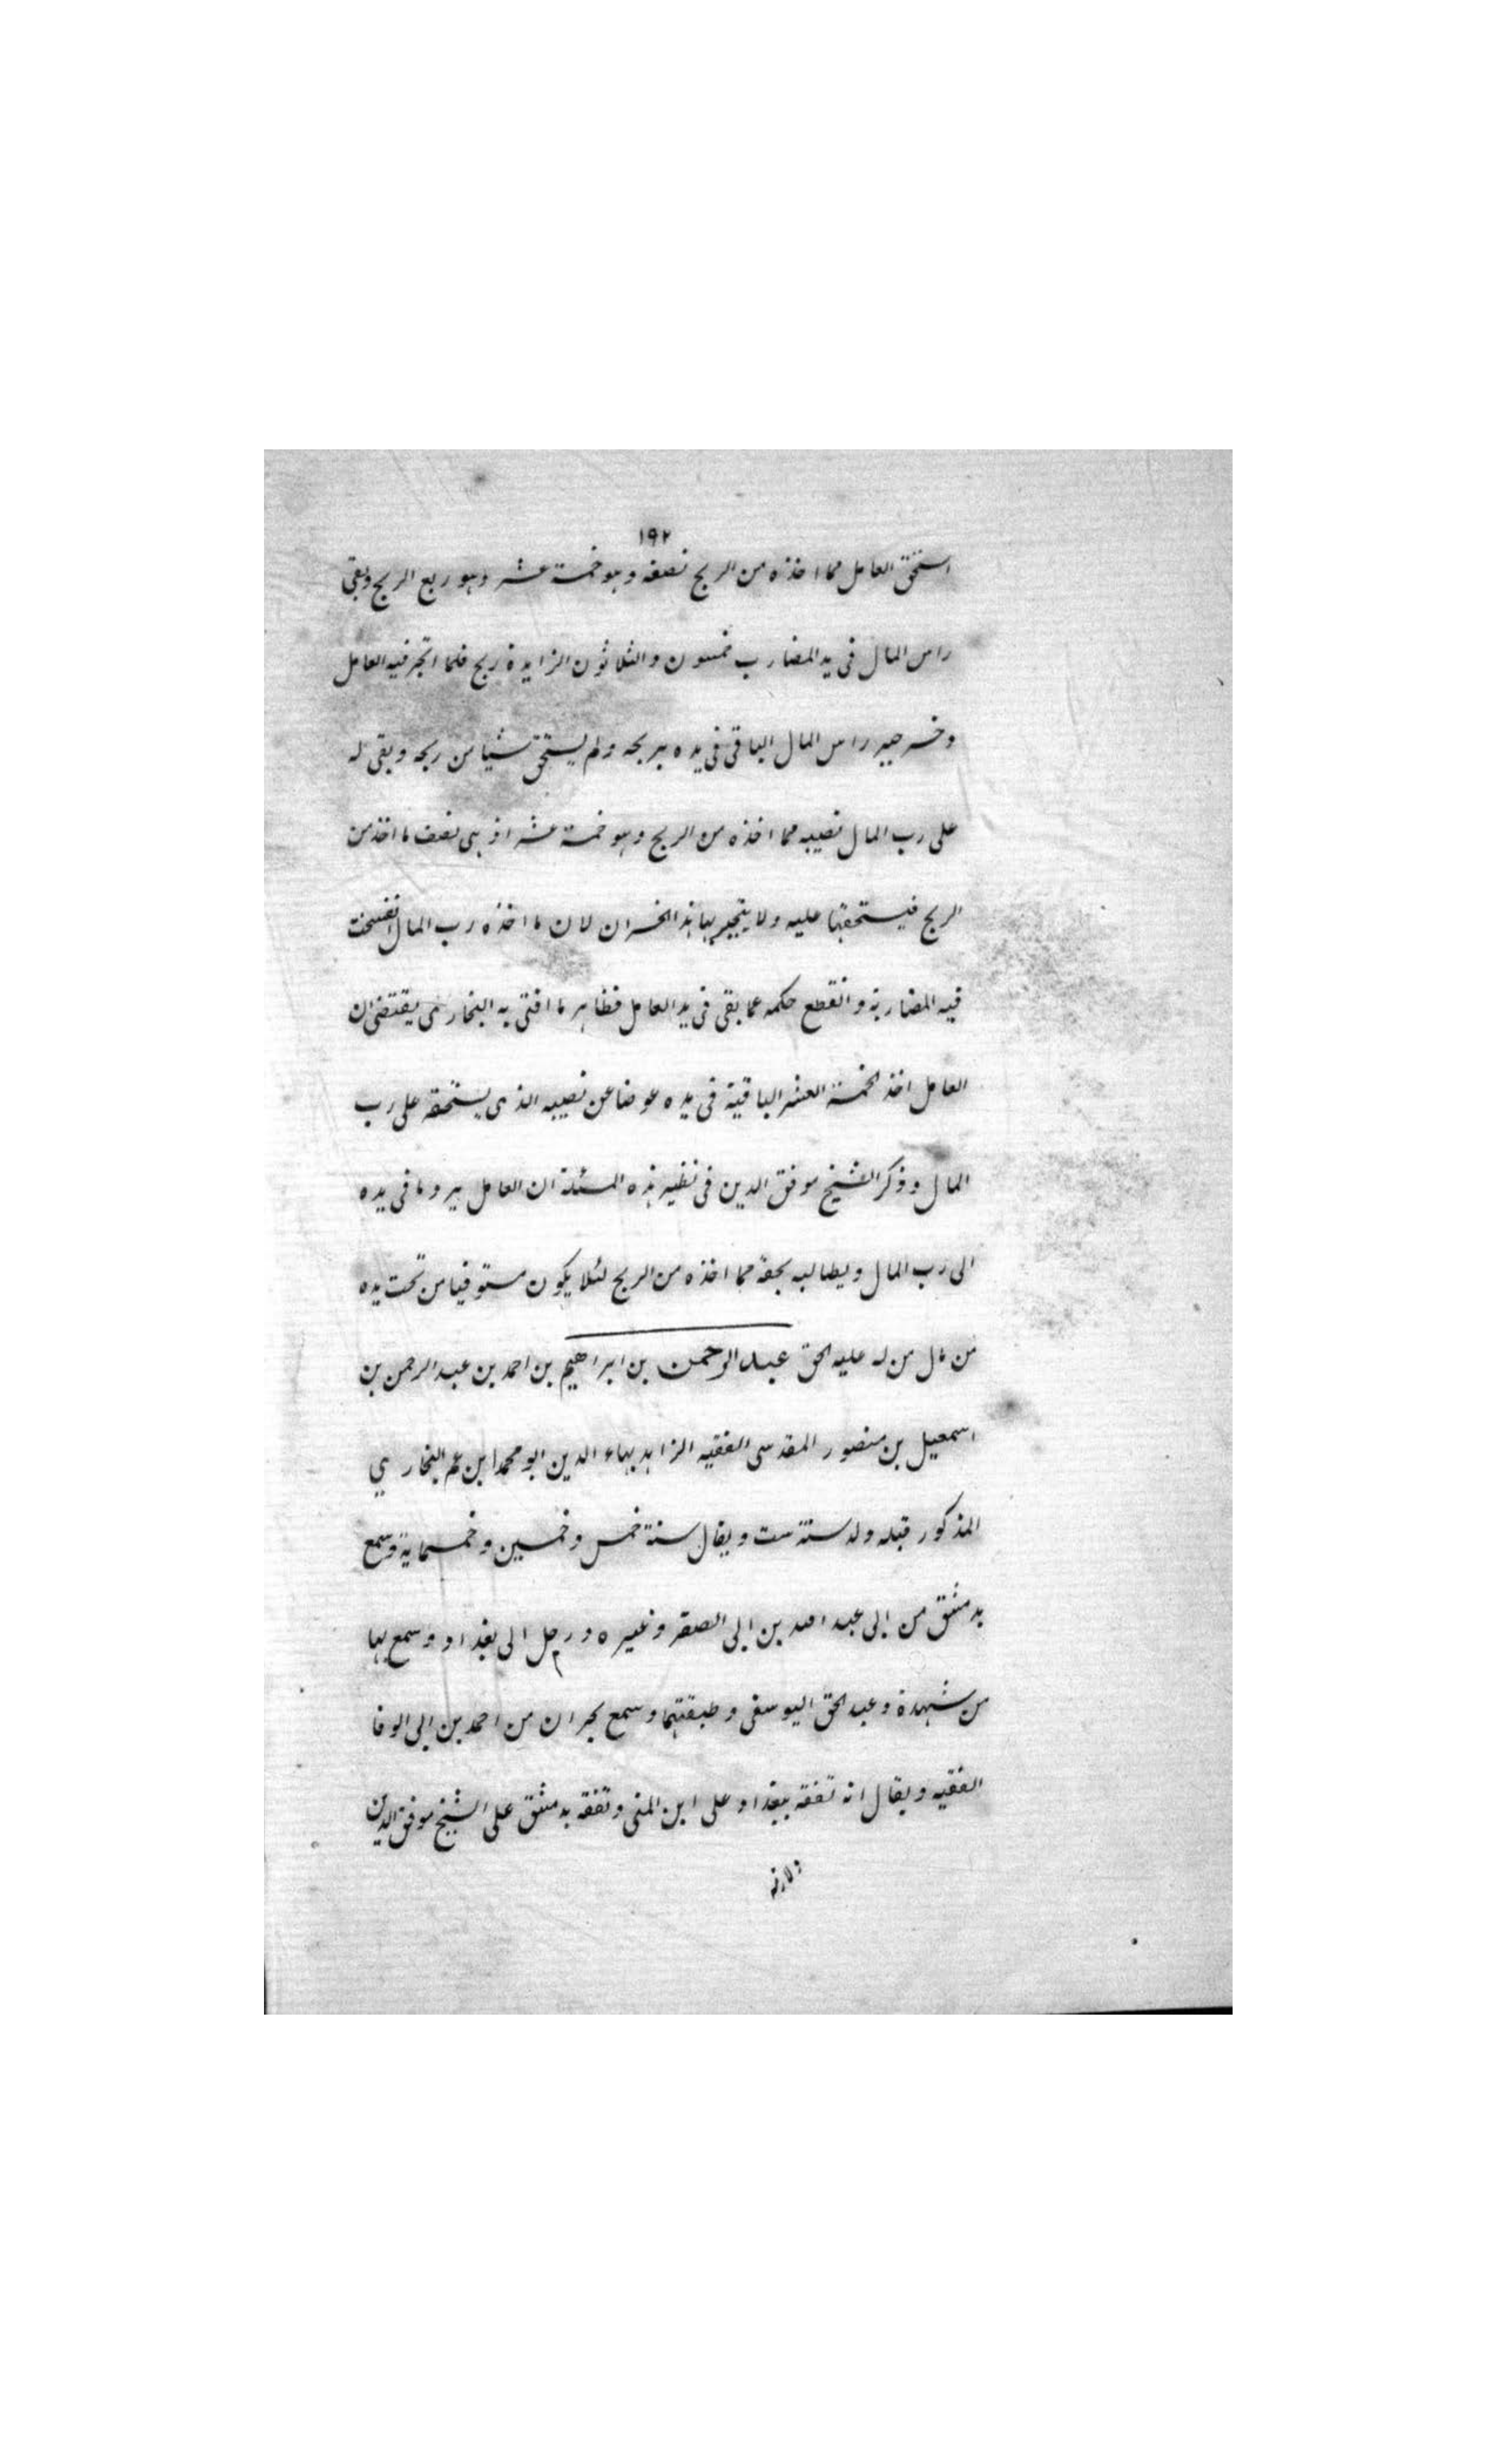 ١٩٢
استحق العامل مما اخذه من الربح نصفه وهو خمسة عشر وهو ربع الربح وبقى
راس المال فى يد المضارب خمسون والثلاثون الزايدة ربح فلما اتجر فيه العامل
وخسر جبر راس المال الباقى فى يده بربحه ولم يستحق شيا من ربحه وبقى له
على رب المال نصيبه مما اخذه من الربح وهو خمسة عشر اذ هى نصف ما اخذ من
الربح فيستحقها عليه ولا ينجبر بها هذا الخسران لان ما اخذه رب المال انفسخت
فيه المضاربة وانقطع حكمه عما بقى فى يد العامل فظاهر ما افتى به البخارى يقتضى ان
العامل اخذ الخمسة العشر الباقية فى يده عوضا عن نصيبه الذى يستحقه على رب
المال وذكر الشيخ موفق الدين فى نظير هذه المسئلة ان العامل يرد ما فى يده
الى رب المال ويطالبه بحقه مما اخذه من الربح لئلا يكون مستوفيا من تحت يده
من مال من له عليه الحق عبد الرحمن بن ابراهيم بن احمد بن عبد الرحمن بن
اسمعيل بن منصور المقدسى الفقيه الزاهد بهاء الدين ابو محمد ابن عم البخاري
المذكور قبله ولد سنة ست ويقال سنة خمس وخمسين وخمسماية وسمع
بدمشق من ابى عبد الله بن ابى الصقر وغيره ورحل الى بغداد وسمع بها
من شهدة وعبد الحق اليوسفى وطبقتهما وسمع بحران من احمد بن ابى الوفا
الفقيه ويقال انه تفقه ببغداد على ابن المنى وتفقه بدمشق على الشيخ موفق الدين
ولازمه